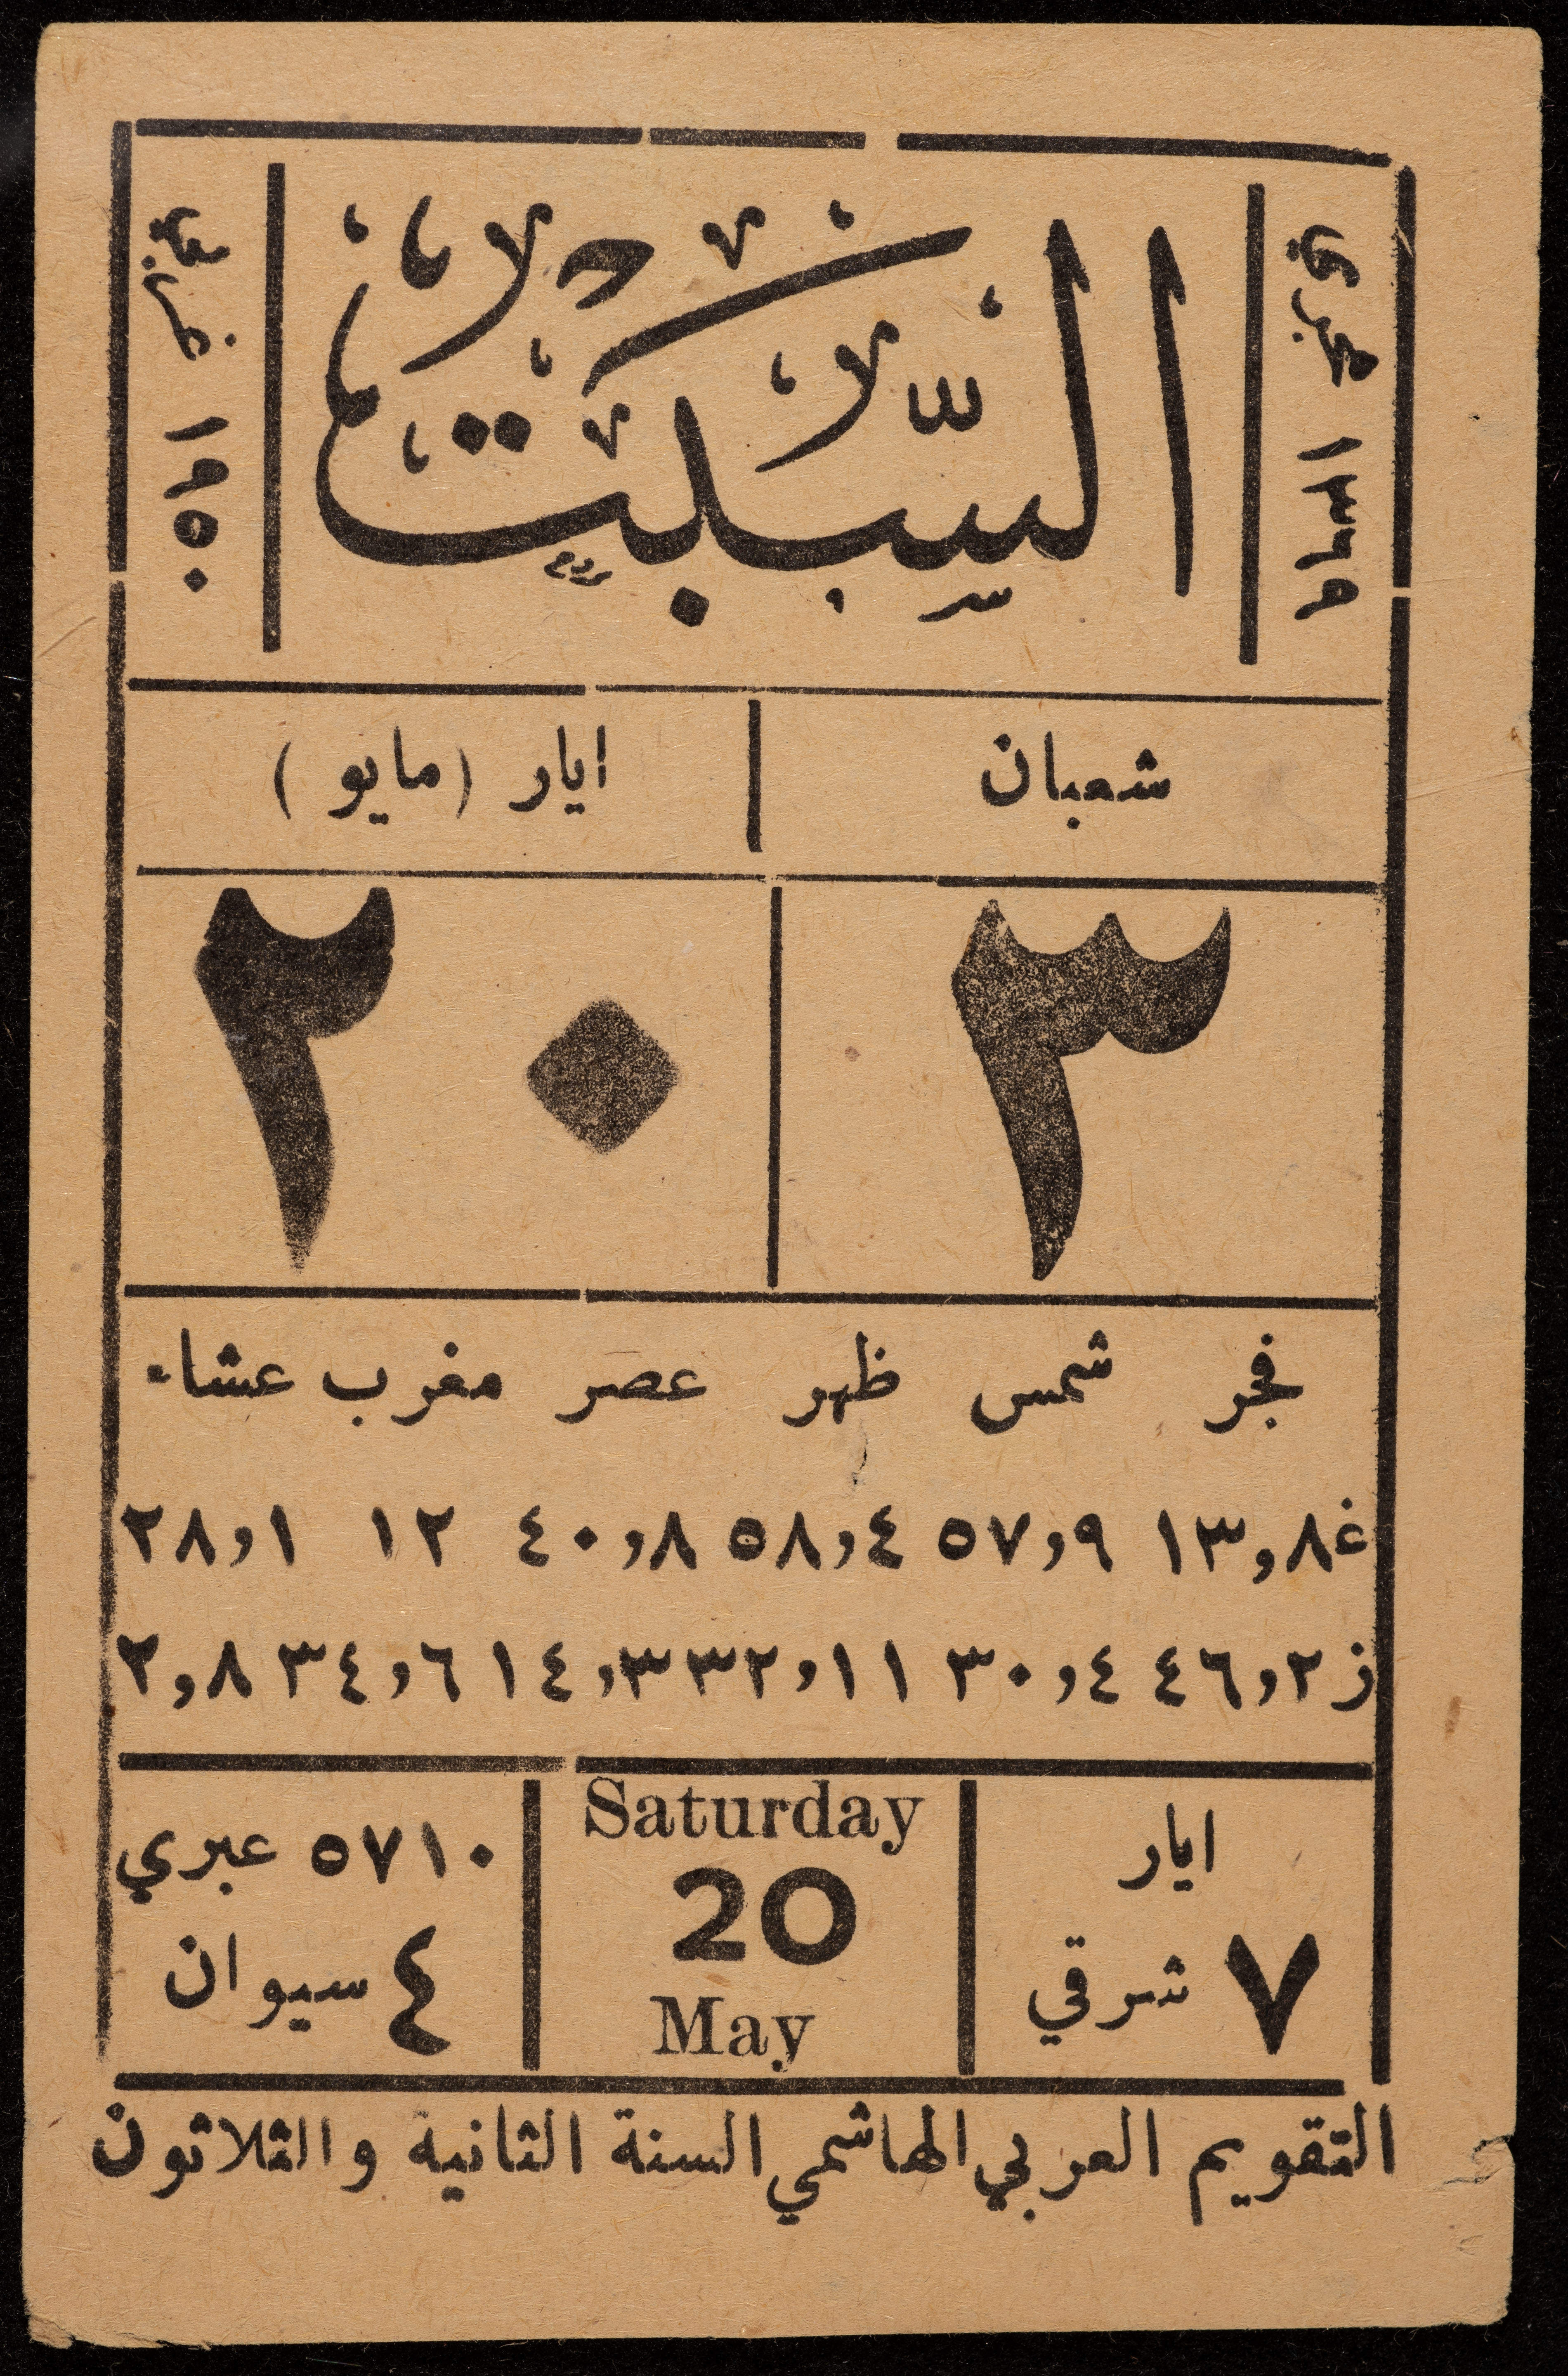 ١٣٦٩ هجري
السبت
١٩٥٠ غربي
شعبان
ايار (مايو)
٣
٢٠
فجر شمس ظهر عصر مغرب عشاء
غ ١٣,٨ ٥٧,٩ ٥٨,٤ ٤٠,٨ ١٢ ٢٨,١
ز ٤٦,٢ ٣٠,٤ ٣٢,١١ ١٤,٣ ٣٤,٦ ٢,٨
ايار
٧ شرقي
Saturday
20
May
٥٧١٠ عبري
٤ سيوان
التقويم العربي الهاشمي السنة الثانية والثلاثون